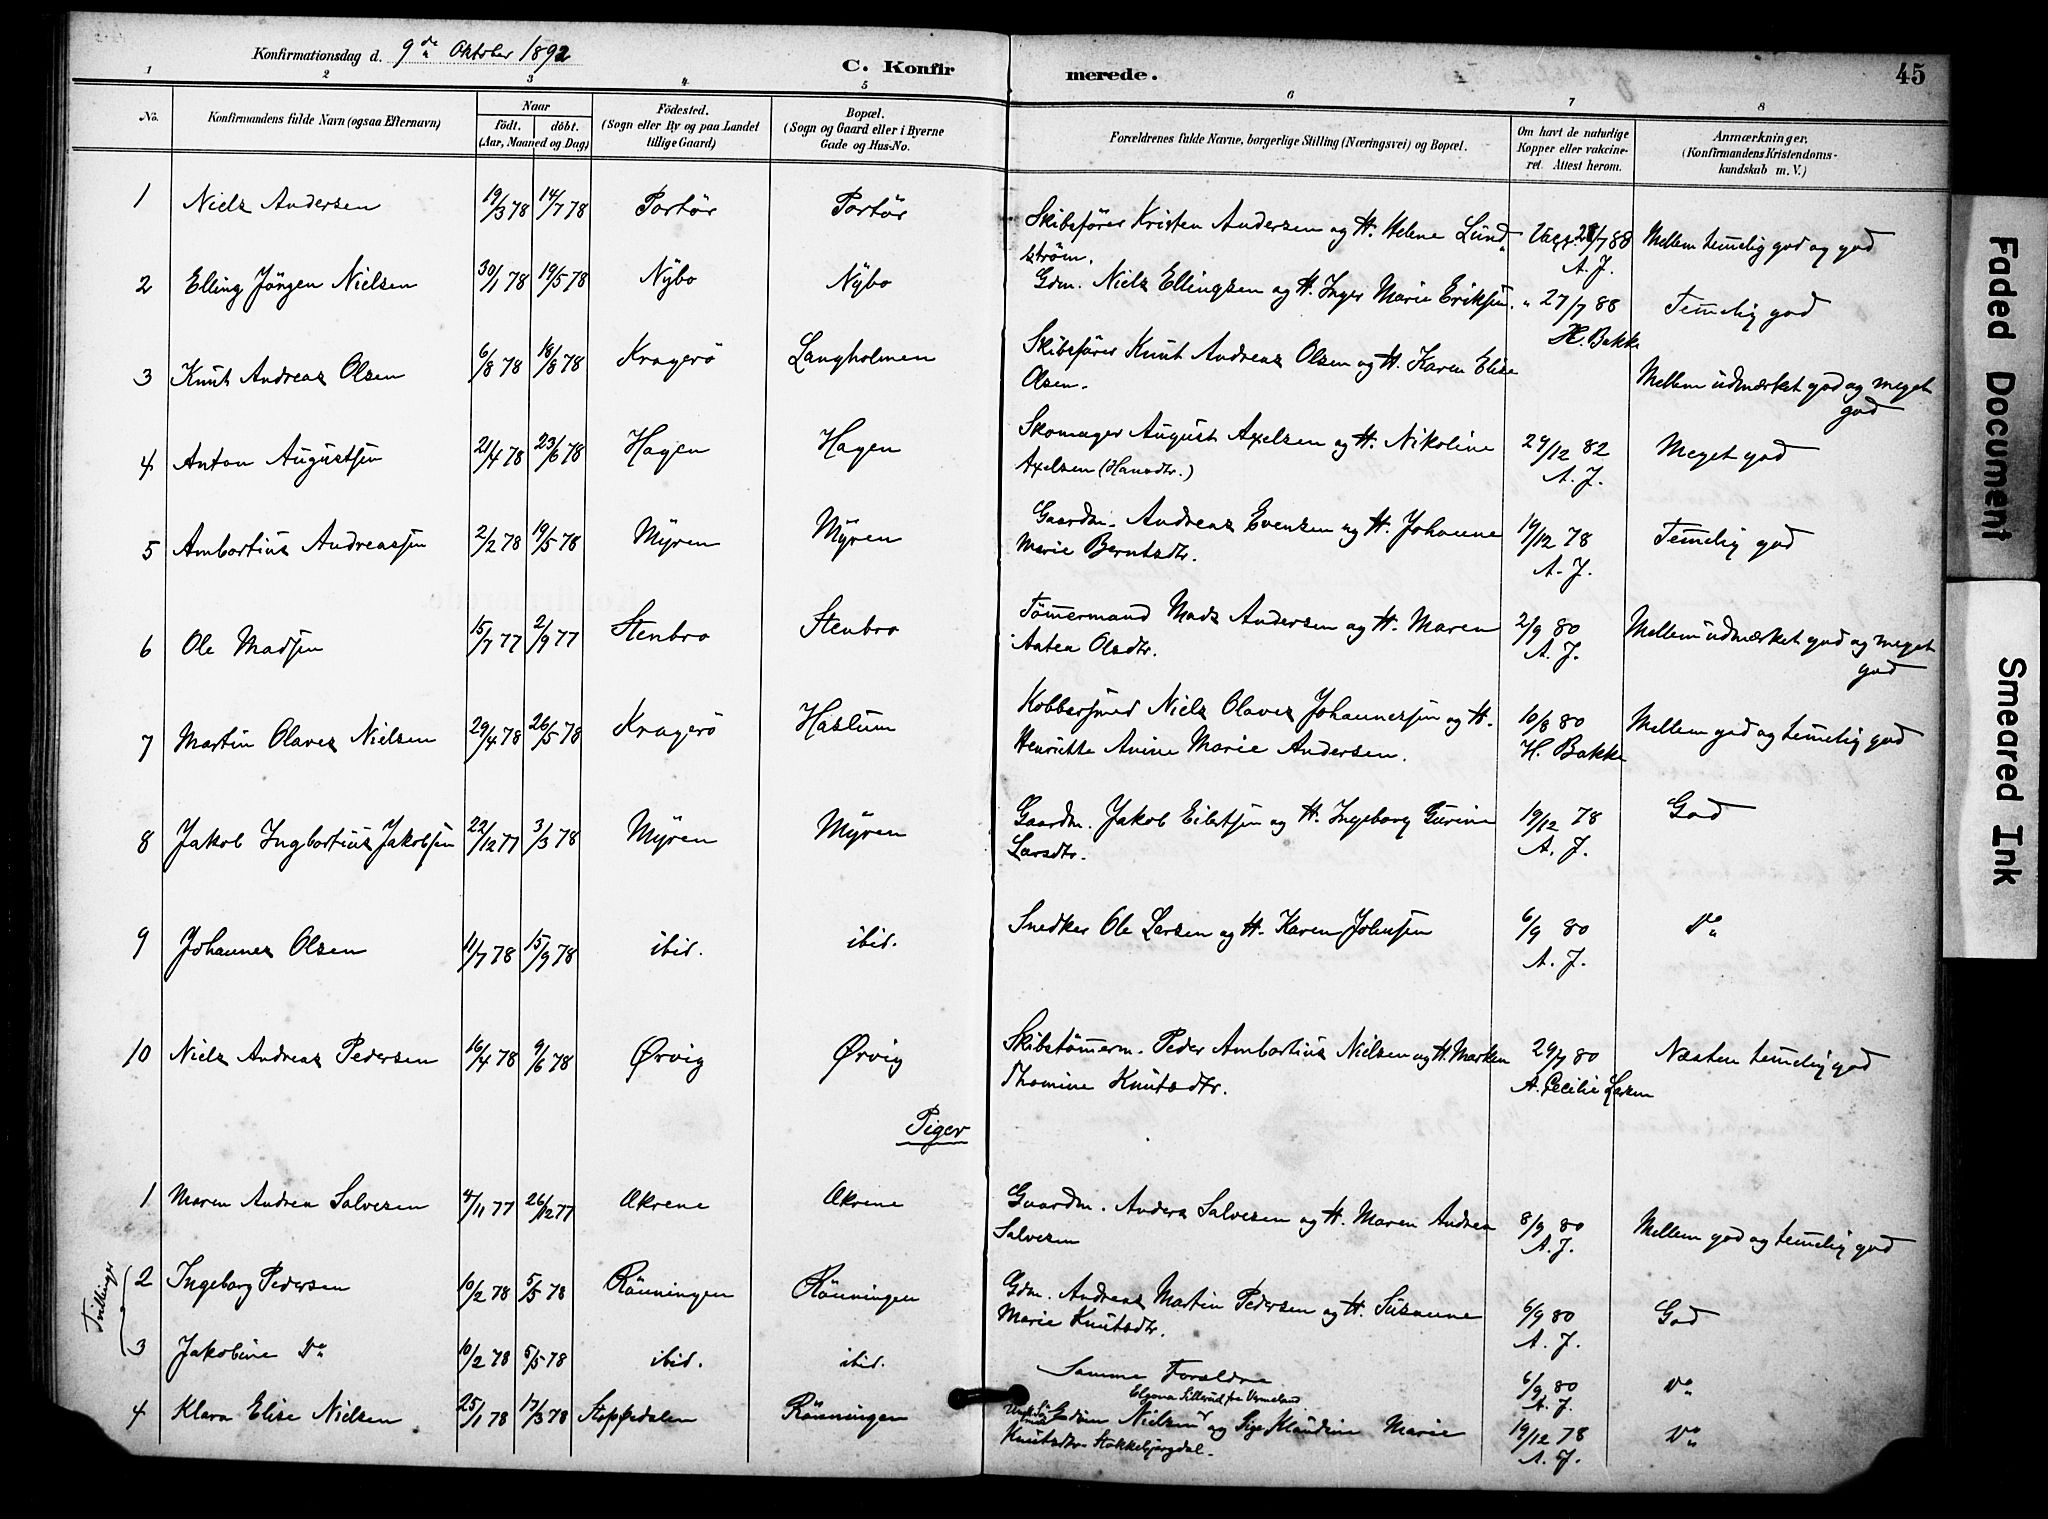 Konfirmationsdag d. 9de Oktober 1892
C. Konfirmerede.
45
1 2 3 4 5 6 7 8
No.
Konfirmandens fulde Navn (ogsaa Efternavn)
Naar
födt. döbt.
(Aar, Maaned og Dag)
Födested.
(Sogn eller By og paa Landet
tillige Gaard)
Bopæl.
(Sogn og Gaard eller i Byerne
Gade og Hus-No.
Forældrenes fulde Navne, borgerlige Stilling (Næringsvei) og Bopæl.
Om havt de naturlige
Kopper eller vakcine-
ret. Attest herom.
Anmærkninger.
(Konfirmandens Kristendoms-
kundskab m. V.)
1 Niels Andersen 19/3 78 14/7 78 Portör Portör Skibsförer Kristen Andersen og H. Helene Lund-
ström. Vacc. 28/7 88 A. J. Mellem temelig god og god
2 Elling Jörgen Nielsen 30/1 78 19/5 78 Nybo Nybo Gdm. Niels Ellingsen og H. Inger Marie Eriksen. " 27/7 88
H. Bakke Temelig god
3 Knut Andreas Olsen 6/8 78 18/8 78 Kragerö Langholmen Skibsförer Knut Andreas Olsen og H. Karen Elise
Olsen. Mellem udmærket god og meget
god
4 Anton Augustsen 21/4 78 23/6 78 Hagen Hagen Skomager August Axelsen og H. Nikoline
Axelsen (Hansdtr.) 29/12 82
A. J. Meget god
5 Ambortius Andreassen 2/2 78 19/5 78 Myren Myren Gaardm. Andreas Evensen og H. Johanne
Marie Berntsdtr. 19/12 78
A. J. Temelig god
6 Ole Madsen 15/7 77 2/9 77 Stenbro Stenbro Tömmermand Mads Andersen og H. Maren
Antea Olsdtr. 2/9 80
A. J. Mellem udmærket god og meget
god
7 Martin Olaves Nielsen 29/4 78 26/5 78 Kragerö Haslum Kobbersmed Niels Olaves Johannessen og H.
Henriette Anine Marie Andersen. 10/8 80
H. Bakke Mellem god og temelig god
8 Jakob Ingbortius Jakobsen 22/12 77 3/3 78 Myren Myren Gaardm. Jakob Eilertsen og H. Ingeborg Gurine
Larsdtr. 19/12 78
A. J. God
9 Johannes Olsen 11/7 78 15/9 78 ibid. ibid. Snedker Ole Larsen og H. Karen Johnsen 6/9 80
A. J. Do
10 Niels Andreas Pedersen 16/4 78 9/6 78 Ørvig Ørvig Skibstömerm. Peder Ambortius Nielsen og H. Marken
Thomine Knutsdtr. 29/7 80
A. Cecilie Larsen Næsten temelig god
Piger
1 Maren Andrea Salvesen 4/11 77 26/12 77 Økrene Økrene Gaardm. Anders Salvesen og H. Maren Andrea
Salvesen 8/9 80
A. J. Mellem god og temelig god
Tvillinger
2 Ingeborg Pedersen 10/2 78 5/5 78 Rönningen Rönningen Gdm. Andreas Martin Pedersen og H. Susanne
Marie Knutsdtr. 6/9 80
A. J. God
3 Jakobine Do 10/2 78 5/5 78 ibid. ibid. Samme Forældre 6/9 80
A. J. Do
Elgona Sillerud fra Vermeland
4 Klara Elise Nielsen 25/1 78 17/3 78 Stoppedalen Rönningen Edvin Nielsen og Pige Klaudine Marie
Knutsdtr. Stokkebjergdal. 19/12 78
A. J. Do
Faded Document
Smeared Ink